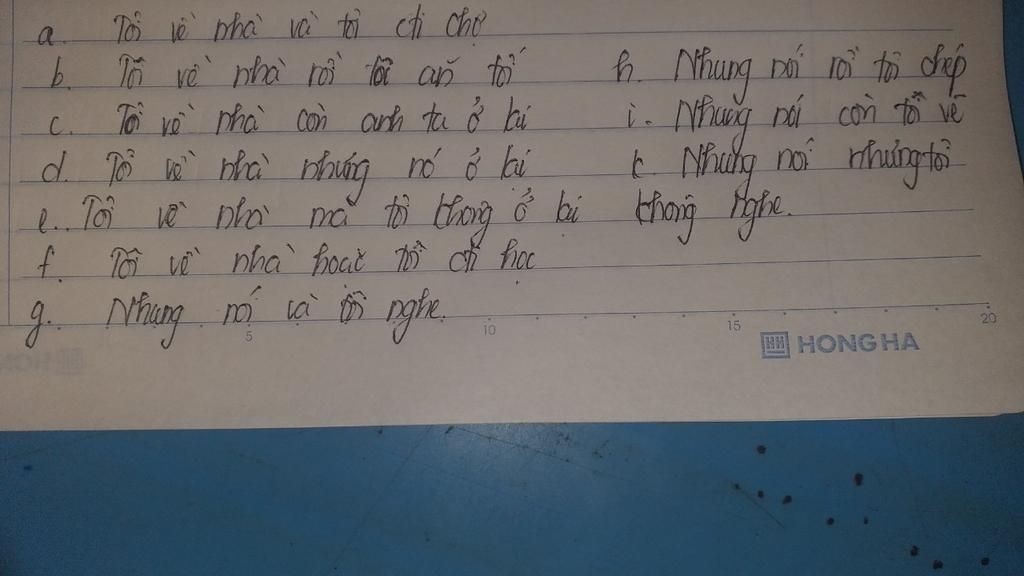 a. Tôi về nhà và tôi đi chợ
b. Tôi về nhà rồi tôi ăn tối
c. Tôi về nhà còn anh ta ở lại
d. Tôi về nhà nhưng nó ở lại
e.. Tôi về nhà mà tôi không ở lại
f. Tôi về nhà hoặc tôi đi học
g. Nhung nói và tôi nghe.
h. Nhung nói rồi tôi chép
i. Nhung nói còn tôi vẽ
k. Nhung nói nhưng tôi
không nghe.
5 10 15 20
HH HONG HA